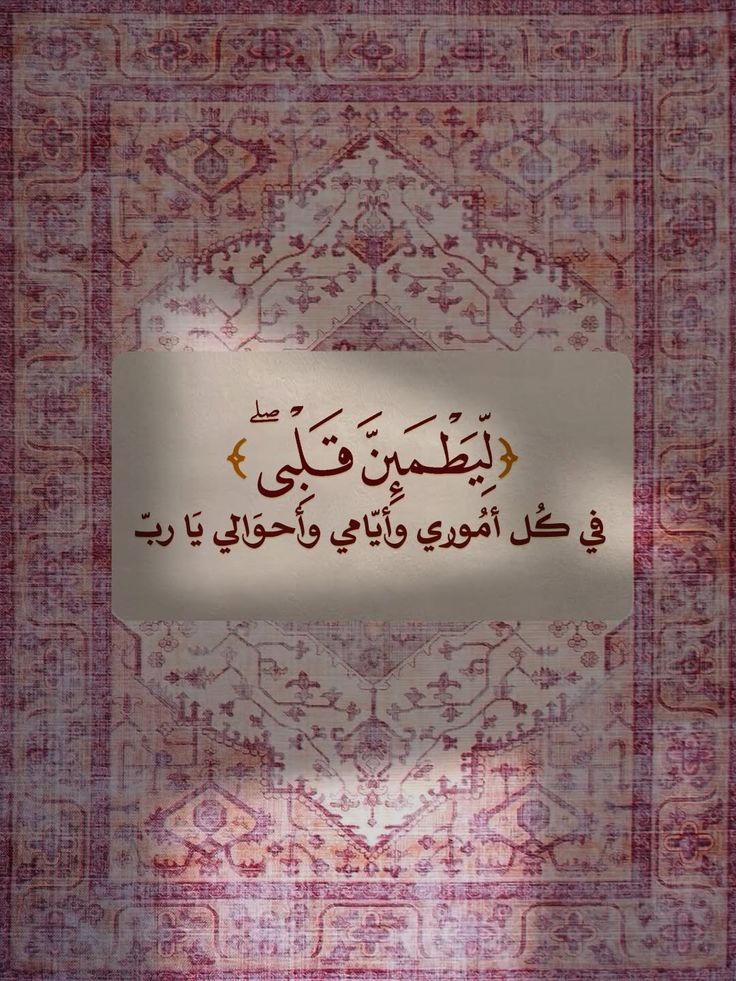 ﴿لِّيَطْمَئِنَّ قَلْبِىۖ﴾
في كُل أمُوري وأيّامي وأحوَالي يَا ربّ